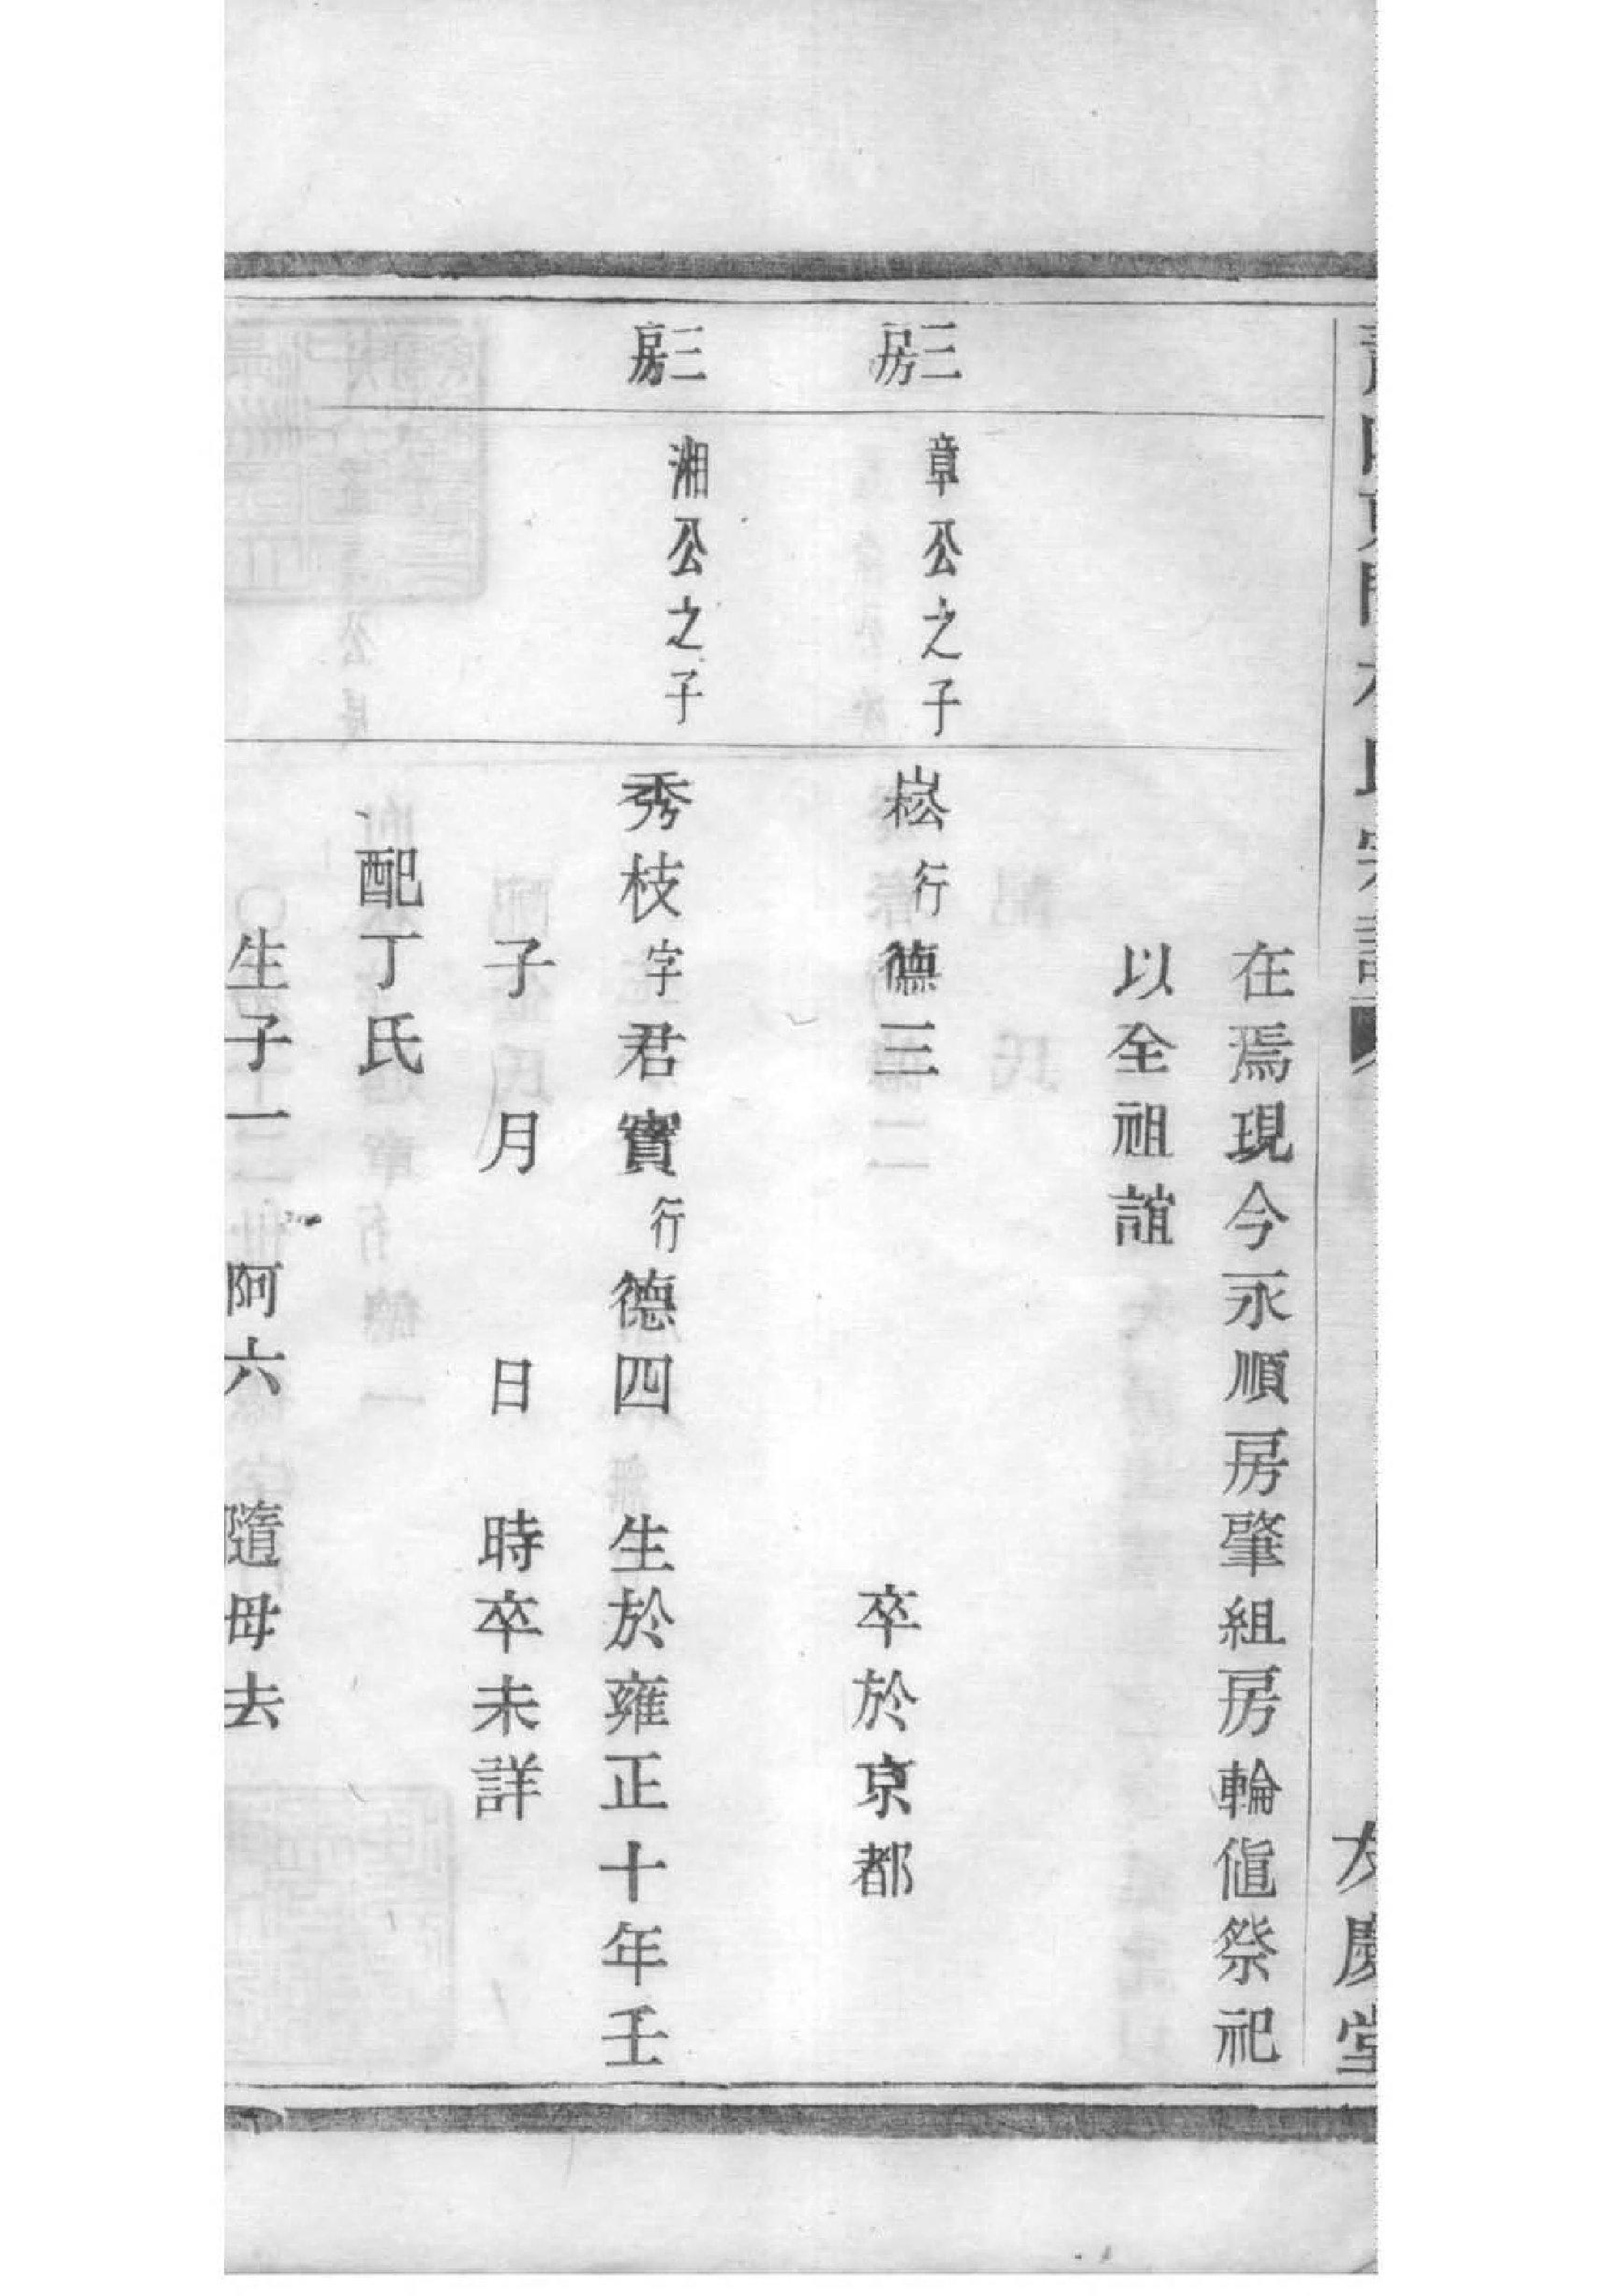 友慶堂
在焉現今永順房肇組房輪值祭祀
以全祖誼
三房
章公之子
崧行德三 卒於京都
三房
湘公之子
秀枝字君實行德四 生於雍正十年壬
子月 日 時卒未詳
配丁氏
生子一 阿六 隨母去